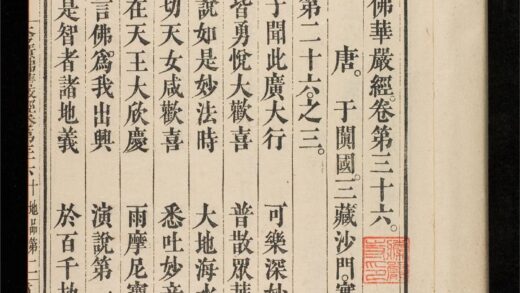 佛華嚴經。卷第三十六。
唐。于闐國。三藏沙門。實
第二十六。之三。
于聞此廣大行 可樂深妙
皆勇悅大歡喜 普散眾華
說如是妙法時 大地海水
切天女咸歡喜 悉吐妙音
在天王大欣慶 雨摩尼寶
言佛爲我出興 演說第一
是智者諸地義 於百千劫